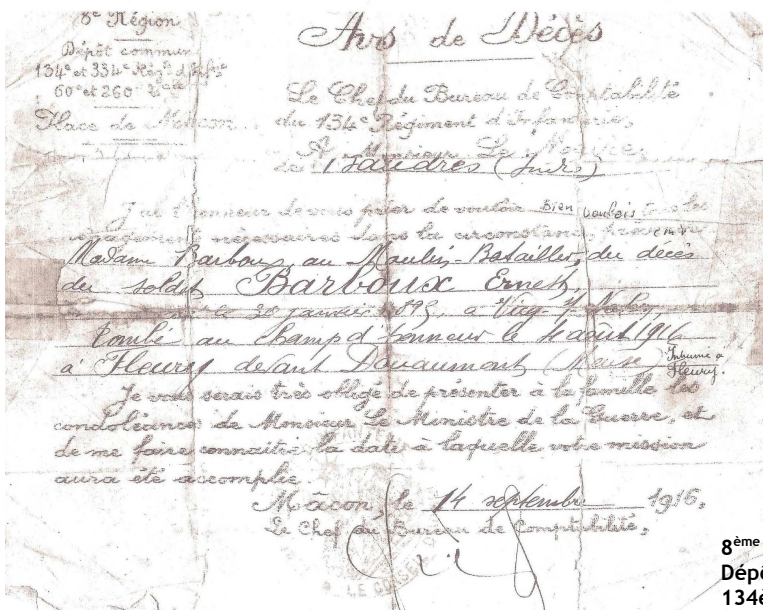 8e Région
Dépôt commun
134e et 334e Rég. d'Inf
60e et 260
Place de Mâcon.
Avis de Décès
Le Chef du Bureau de Comptabilité
du 134e Régiment d'Infanterie,
A Monsieur Le
de (Jura)
J'ai l'honneur de vous prier de vouloir bien
nécessaires dans la circonstance,
Madame Barboux, au Moulin-Batailler, du décès
du soldat Barboux Ernest,
le 20 janvier 1895, à
tombé au champ d'honneur le 4 août 1916
à Fleury devant Douaumont (Meuse) Inhumé à
Fleury.
Je vous serais très obligé de présenter à la famille les
condoléances de Monsieur Le Ministre de la Guerre, et
de me faire connaitre la date à laquelle votre mission
aura été accomplie.
Mâcon, le 14 septembre 1916,
Le Chef du Bureau de Comptabilité,
8ème
Dép
134